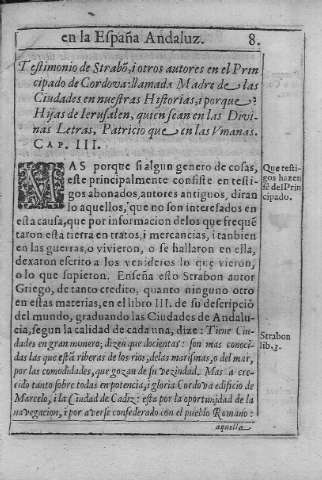 en la España Andaluz. 8.
Testimonio de Strabõ, i otros autores en el Prin
cipado de Cordova: llamada Madre de las
Ciudades en nuestras Historias, i porque?
Hijas de Ierusalen, quien sean en las Divi
nas Letras, Patricio que en las Vmanas.
CAP. III.
MAS porque si algun genero de cosas,
este principalmente consiste en testi
gos abonados, autores antiguos, diran
lo aquellos, que no son interesados en
esta causa, que por informacion de los que frequẽ
taron esta tierra en tratos, i mercancias, i tanbien
en las guerras, o vivieron, o se hallaron en ella,
dexaron escrito a los venideros lo que vieron,
o lo que supieron. Enseña esto Strabon autor
Griego, de tanto credito, quanto ninguno otro
en estas materias, en el libro III. de su descripciõ
del mundo, graduando las Ciudades de Andalu-
cia, segun la calidad de cada una, dize: Tiene Ciu
dades en gran numero, dizen que docientas: son mas conoci
das las que està riberas de los rios, de las marismas, o del mar,
por las comodidades, que gozan de su vezindad. Mas a cre-
cido tanto sobre todas en potencia, i gloria Cordova edificio de
Marcelo, i la Ciudad de Cadiz: esta por la oportunidad de la
navegacion, i por averse confederado con el pueblo Romano:
aquella
Que testi-
gos hazen
fè del Prin
cipado.
Strabon
lib. 3.